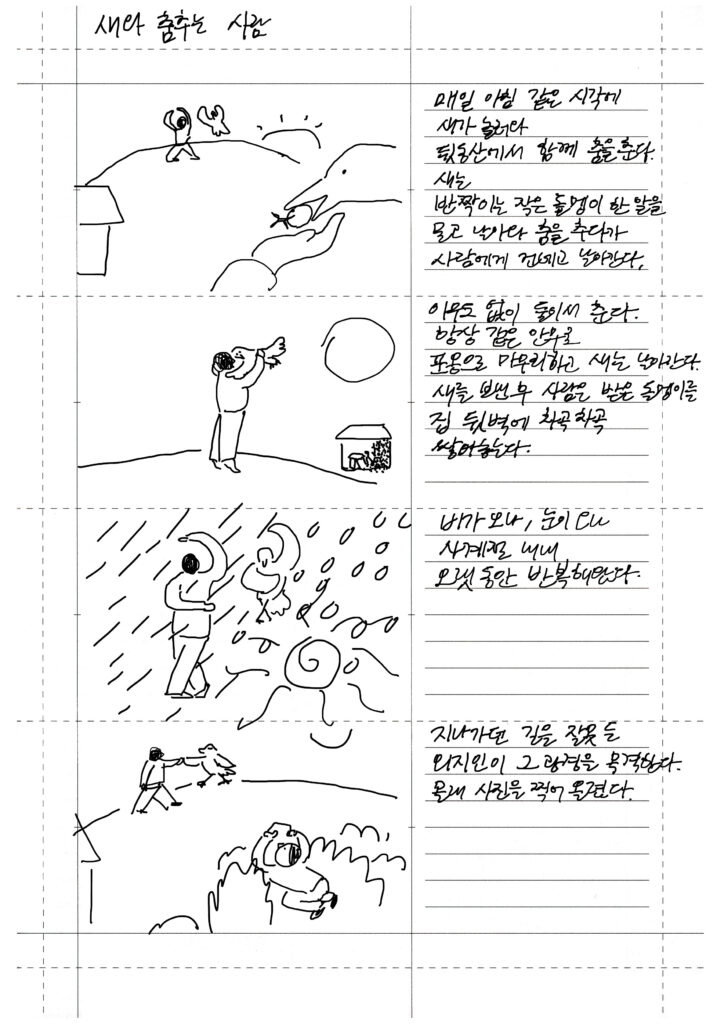 새와 춤추는 사람
매일 아침 같은 시각에
새가 놀러와
뒷동산에서 함께 춤을 춘다.
새는
반짝이는 작은 돌멩이 한 알을
물고 날아와 춤을 추다가
사람에게 건네고 날아간다.
아무도 없이 둘이서 춘다.
항상 같은 안무로
포옹으로 마무리하고 새는 날아간다.
새를 보낸 후 사람은 받은 돌멩이를
집 뒷벽에 차곡차곡
쌓아놓는다.
비가 오나, 눈이 오나
사계절 내내,
오랫동안 반복해왔다.
지나가던 길을 잘못 든
외지인이 그 광경을 목격한다.
몰래 사진을 찍어 올렸다.